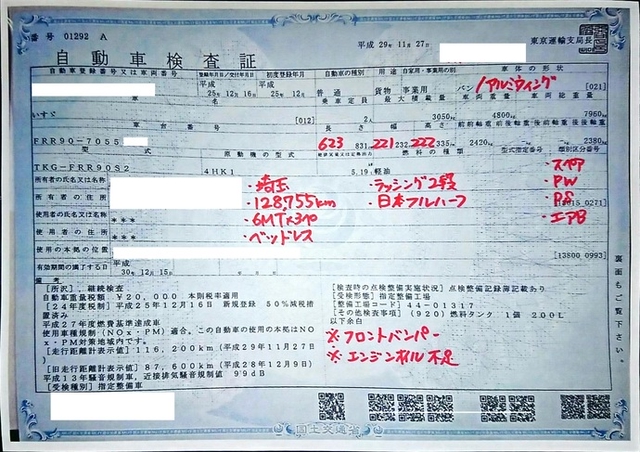 番号 01292 A
平成 29年 11月 27日
東京運輸支局長
自動車検査証
自動車登録番号又は車両番号 登録年月日/交付年月日 初度登録年月 自動車の種別 用途 自家用・事業用の別 車体の形状
平成 25年 12月 16日 平成 25年 12月 普通 貨物 事業用 バン /アルミウィング [021]
車名 乗車定員 最大積載量 車両重量 車両総重量
いすゞ [012] 2人 3050kg 4800kg 7960kg
長さ 幅 高さ 前前軸重 前後軸重 後前軸重 後後軸重
FRR90-7055 623 831 221 232 222 335 2420kg - - 2380kg
型式 原動機の型式 燃料の種類 型式指定番号 類別区分番号
TKG-FRR90S2 4HK1 5.19 軽油
所有者の氏名又は名称
所有者の住所
使用者の氏名又は名称 ***
使用者の住所 ***
使用の本拠の位置
有効期間の満了する日 平成 30年 12月 15日
・埼玉
・128755km
・ベッドレス
・ラッシング2段
・日本フルハーフ
・PW
・PS
・エアB
[13800 0993]
備考
[所沢], 継続検査
自動車重量税額, ¥20,000 本則税率適用
[24年度税制] 平成25年12月16日 新規登録 50%減税措置済み
平成27年度燃費基準達成車
使用車種規制(NOx・PM)適合, この自動車の使用の本拠はNOx・PM対策地域内です。
[走行距離計表示値] 116,200km (平成29年11月27日)
[旧走行距離計表示値] 87,600km (平成28年12月9日)
平成13年騒音規制車, 近接排気騒音規制値 99dB
[受検種別] 指定整備車
[検査時の点検整備実施状況] 点検整備記録簿記載あり
[受検形態] 指定整備工場
[整備工場コード] 44-01317
[その他検査事項] (920) 燃料タンク 1個 200L
以下余白
※フロントバンパー
※エンジンオイル不足
裏面もご覧下さい。
国土交通省